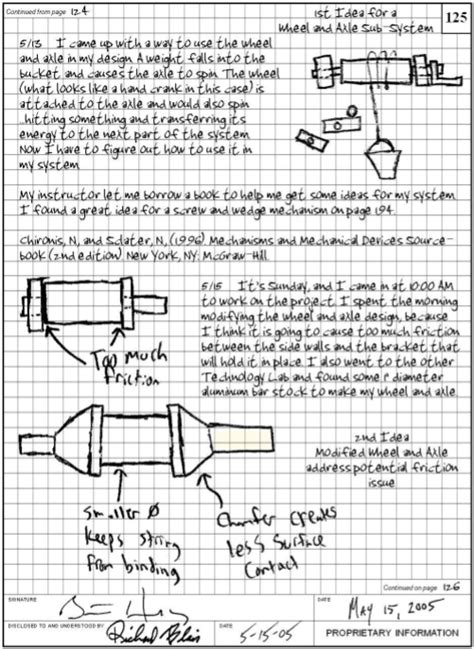 Continued from page 124
1st Idea for a
Wheel and Axle Sub-System
125
5/13 I came up with a way to use the wheel
and axle in my design. A weight falls into the
bucket and causes the axle to spin. The wheel
(what looks like a hand crank in this case) is
attached to the axle and would also spin
hitting something and transferring its
energy to the next part of the system.
Now I have to figure out how to use it in
my system.
My instructor let me borrow a book to help me get some ideas for my system.
I found a great idea for a screw and wedge mechanism on page 194.
Chironis, N, and Sclater, N, (1996). Mechanisms and Mechanical Devices Source-
book (2nd edition). New York, NY: McGraw-Hill.
5/15 It's Sunday, and I came in at 10:00 AM
to work on the project. I spent the morning
modifying the wheel and axle design, because
I think it is going to cause too much friction
between the side walls and the bracket that
will hold it in place. I also went to the other
Technology Lab and found some 1" diameter
aluminum bar stock to make my wheel and axle.
Too Much
friction
2nd Idea
Modified Wheel and Axle
address potential friction
issue
Smaller Ø
Keeps string
from binding
Chamfer creates
less surface
contact
Continued on page 126
SIGNATURE
DATE
May 15, 2005
DISCLOSED TO AND UNDERSTOOD BY
DATE
5-15-05
PROPRIETARY INFORMATION